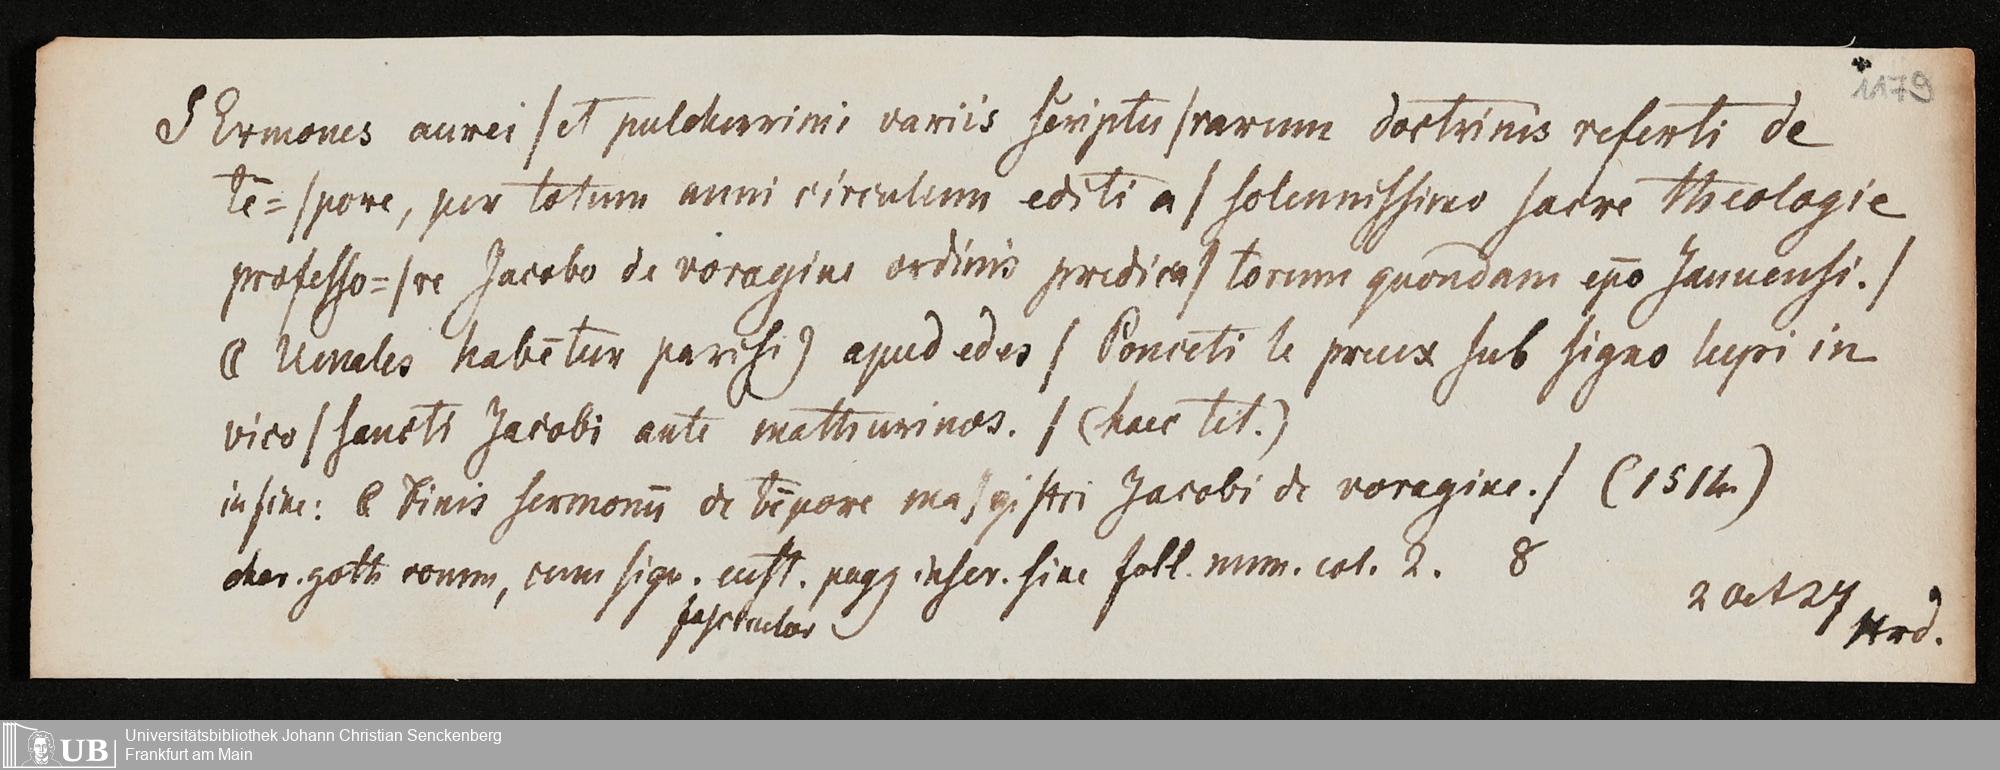 1179
SErmones aurei / et pulcherrimi variis scriptu / rarum doctrinis referti de
tē= / pore, per totum anni circulum editi a / solennissimo sacre theologie
professo= / re Jacobo de voragine ordinis predica / torum quondam ep̄o Januensi. /
C Uenales habētur parisi9 apud edes / Ponceti le preux sub signo lupi in
vico / sancti Jacobi ante mathurinos. / (haec tit.)
in fine: C Finis sermonū de tēpore ma / gistri Jacobi de voragine. / (151
char. goth rom̄, cum sign. cust. pagg inscr. sine foll. num. col. 2. 8
2 Oct 27
Universitätsbibliothek Johann Christian Senckenberg
UB Frankfurt am Main